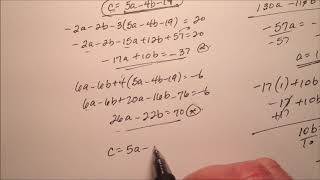 C = 5a - 4b - 19
-2a - 2b - 3(5a - 4b - 19) = 20
-2a - 2b - 15a + 12b + 57 = 20
-17a + 10b = -37
6a - 6b + 4(5a - 4b - 19) = -6
6a - 6b + 20a - 16b - 76 = -6
26a - 22b = 70
C = 5a -
130a - 11
-57a =
-57
a = 1
-17(1) + 10b
-17 + 10b
10b =
10